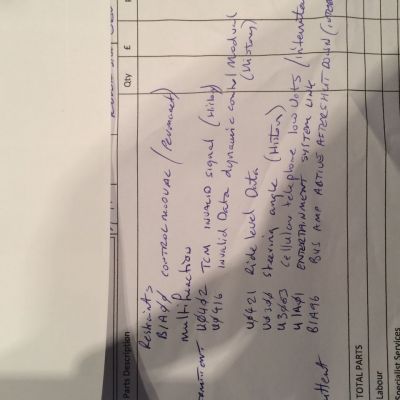 Parts Description Qty £
Restraints
B1A00 CONTROL MODUAL (Permanent)
multifunction
U0402 TCM INVALID signal (History)
U0416 Invalid Data dynamic control Modual (History)
U0421 Ride level Data
U0300 steering angle (History)
U3003 Cellular telephone low Volts
U1A01 ENTERTAINMENT SYSTEM LINK
B1A96 BUS AMP ABTIVE AFTER SHUT DOWN
TOTAL PARTS
Labour
Specialist Services